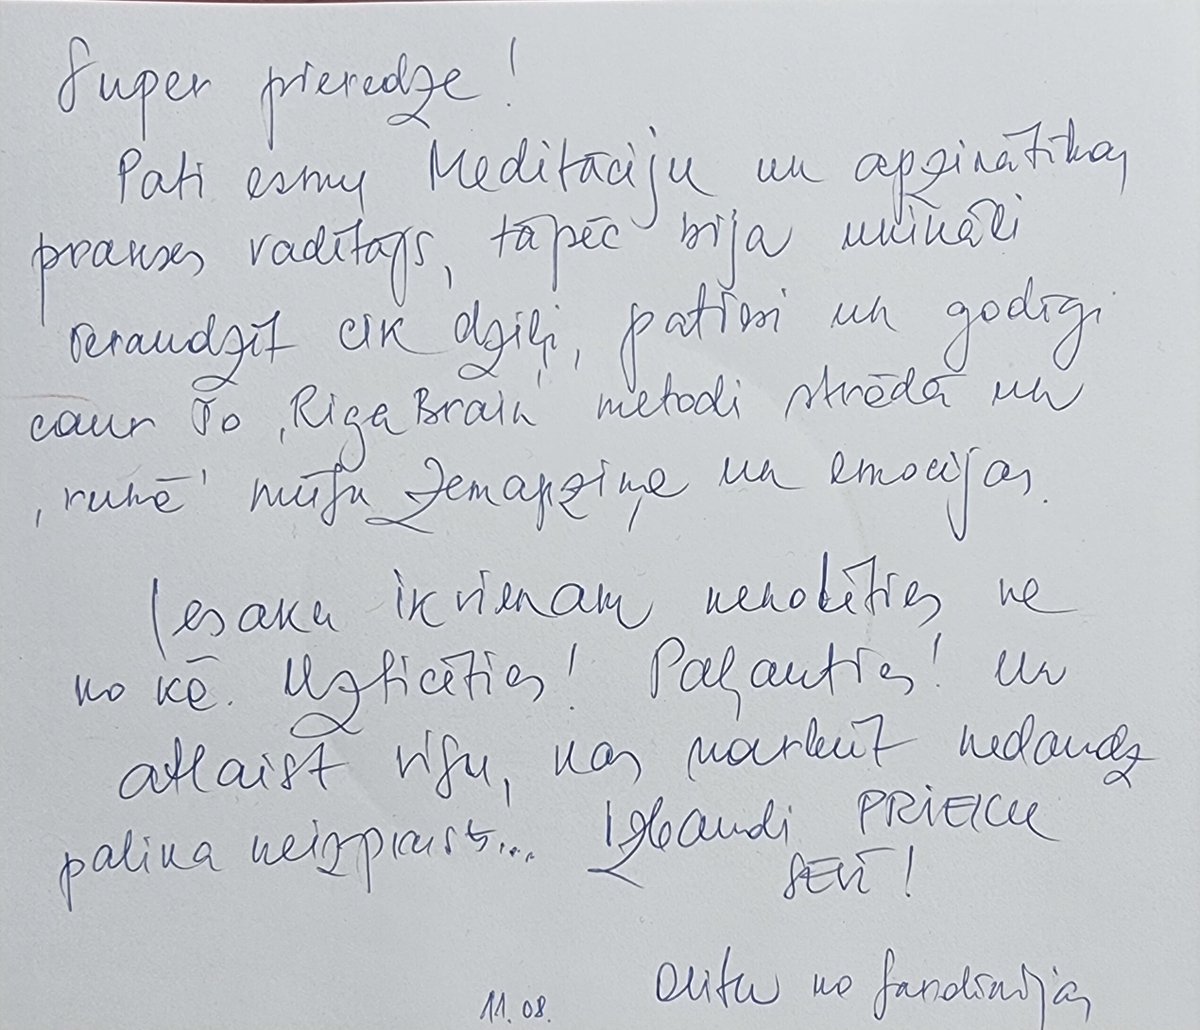 Super pieredze!
Pati esmu Meditāciju un apzinātības
prakses vadītājs, tāpēc bija unikāli
ieraudzīt cik dziļi, patiesi un godīgi
caur šo 'RigaBrain' metodi strādā un
'runā' mūsu zemapziņa un emocijas.
Iesaku ikvienam nenobīties ne
no kā. Uzticēties! Paļauties! Un
atlaist visu, kas varbūt nedaudz
palika neizprasts... Izbaudi PRIEKU
SEVĪ!
no Sardīnijas
11.08.